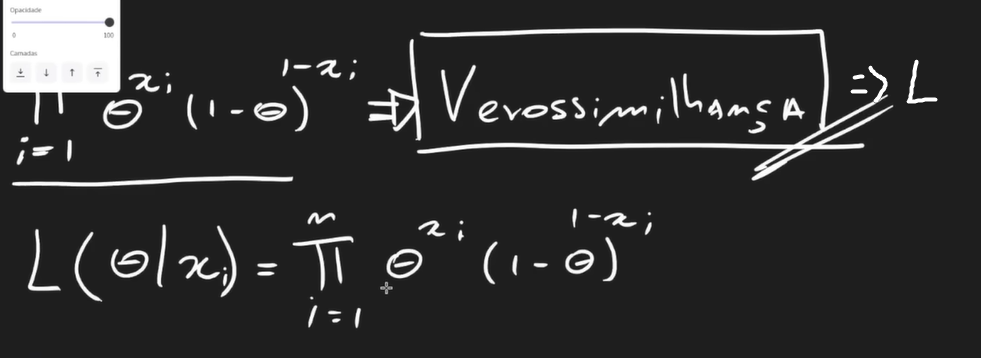 Opacidade
0 100
Camadas
∏ i=1 θ^xi (1-θ)^1-xi ⇒ VerossimilhAnçA ⇒ L
L(θ|xi) = ∏ i=1 n θ^xi (1-θ)^1-xi